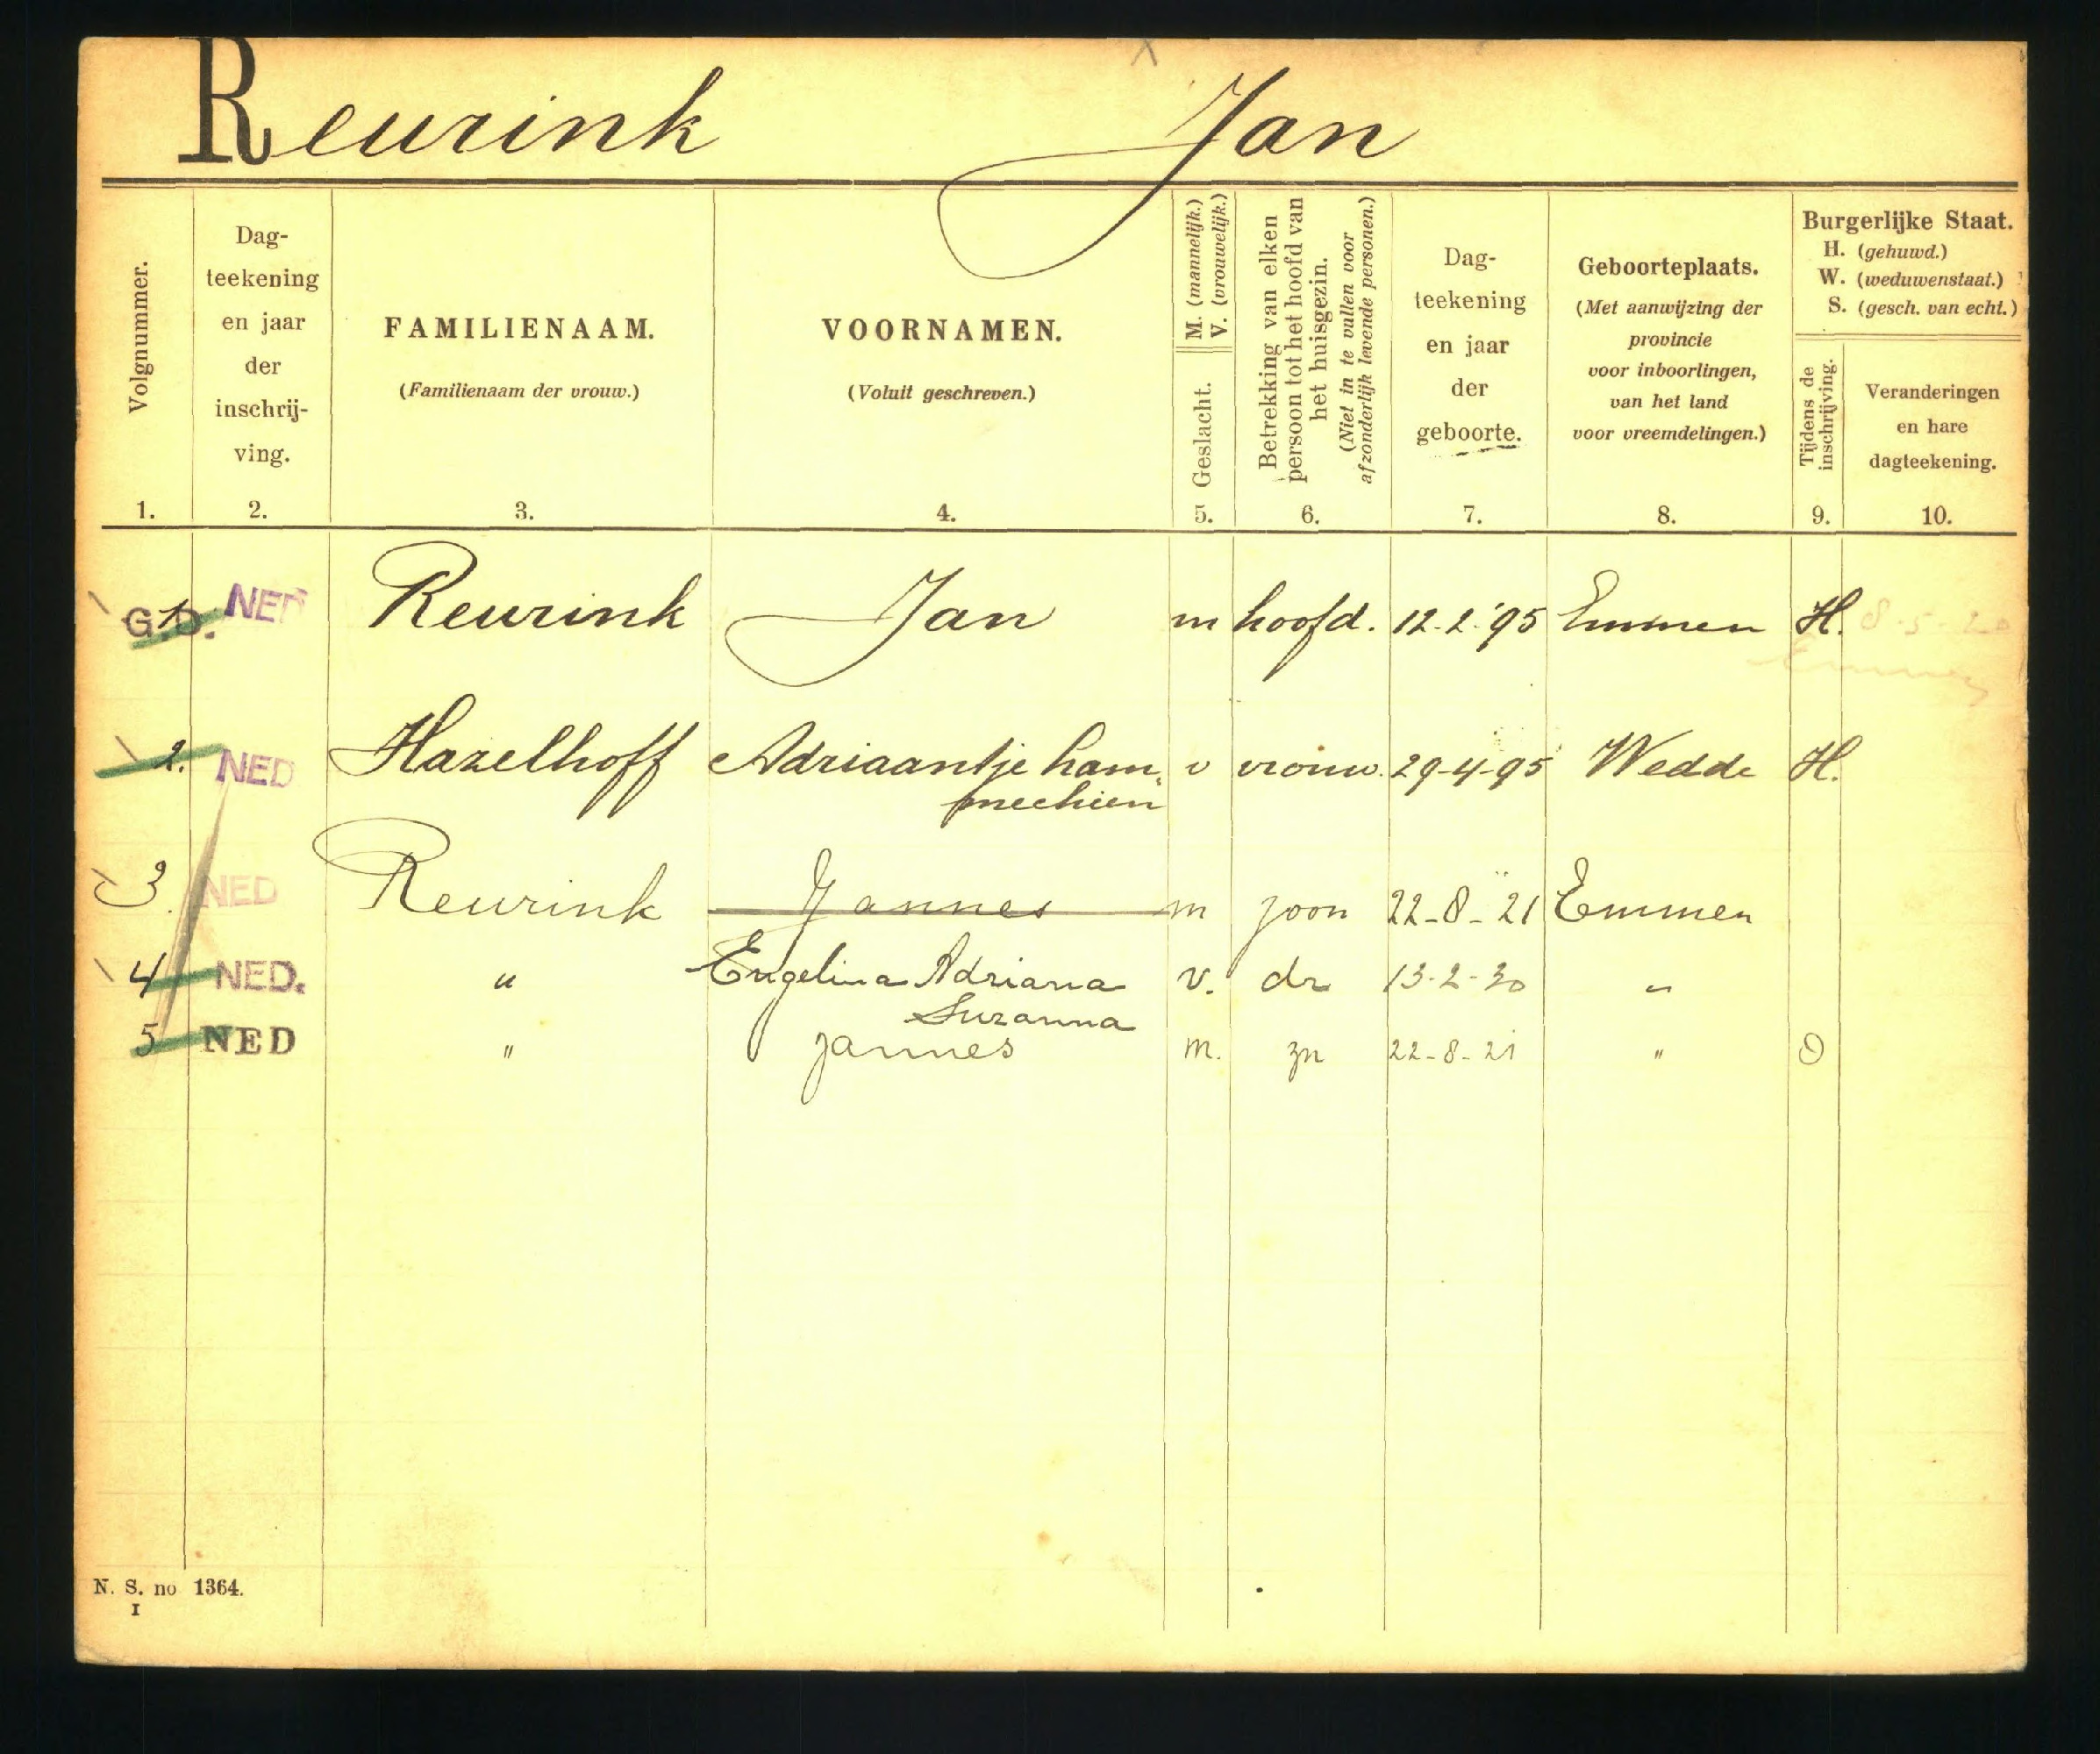 Reurink Jan
Volgnummer.
Dag-
teekening
en jaar
der
inschrij-
ving.
FAMILIENAAM.
(Familienaam der vrouw.)
VOORNAMEN.
(Voluit geschreven.)
M. (mannelijk.)
V. (vrouwelijk.)
Geslacht.
Betrekking van elken
persoon tot het hoofd van
het huisgezin.
(Niet in te vullen voor
afzonderlijk levende personen.)
Dag-
teekening
en jaar
der
geboorte.
Geboorteplaats.
(Met aanwijzing der
provincie
voor inboorlingen,
van het land
voor vreemdelingen.)
Burgerlijke Staat.
H. (gehuwd.)
W. (weduwenstaat.)
S. (gesch. van echt.)
Tijdens de
inschrijving.
Veranderingen
en hare
dagteekening.
1. 2. 3. 4. 5. 6. 7. 8. 9. 10.
G.D. NED Reurink Jan m hoofd. 12-2-'95 Emmen H. 8-5-20
Emmen
2. NED Hazelhoff Adriaantje Ham- v vrouw. 29-4-95 Wedde H.
mechien
3. NED Reurink Jannes m zoon 22-8-21 Emmen
4 NED. " Engelina Adriana v. dr 13-2-30 "
Suzanna
5 NED " Jannes m. zn 22-8-21 " O
N. S. no 1364.
I